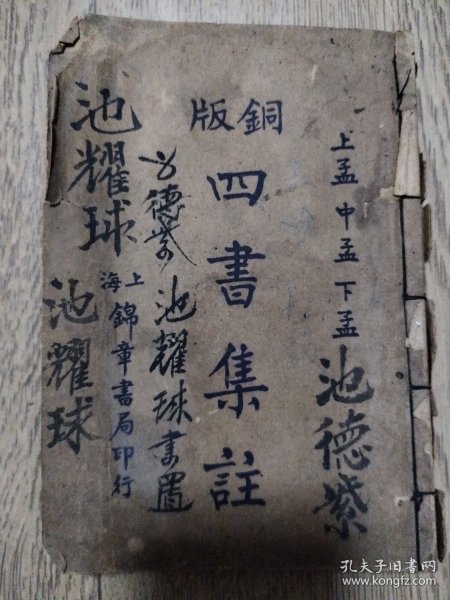 銅版
上孟 中孟 下孟
池德紫
四書集註
德紫
池耀球書置
上海
錦章書局印行
池耀球
池耀球
孔夫子旧书网
www.kongfz.com